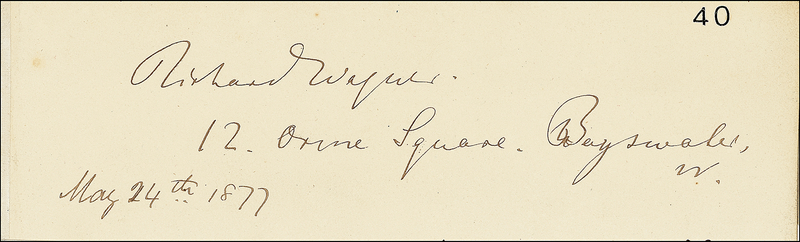 40
Richard Wagner.
12. Orme Square. Bayswater,
W.
May 24th 1877